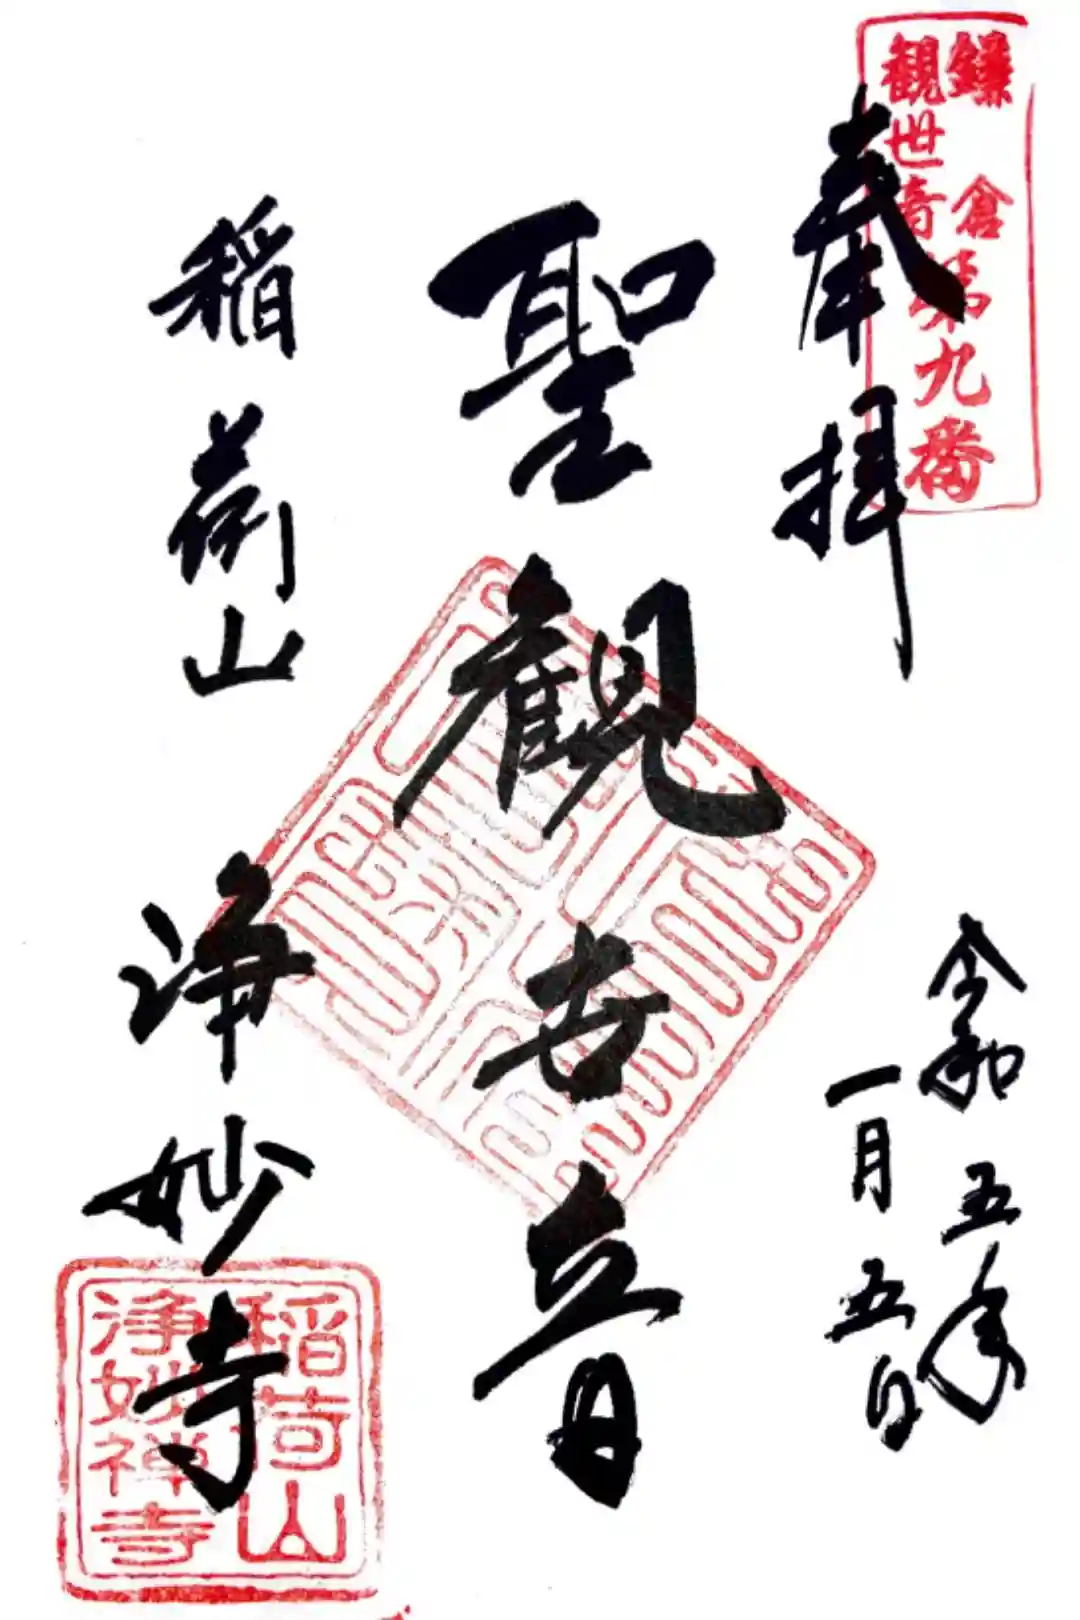 鎌倉
観世音第九番
奉拝
令和五年
一月五日
聖観世音
稲荷山
浄妙寺
稲荷山
浄妙禅寺